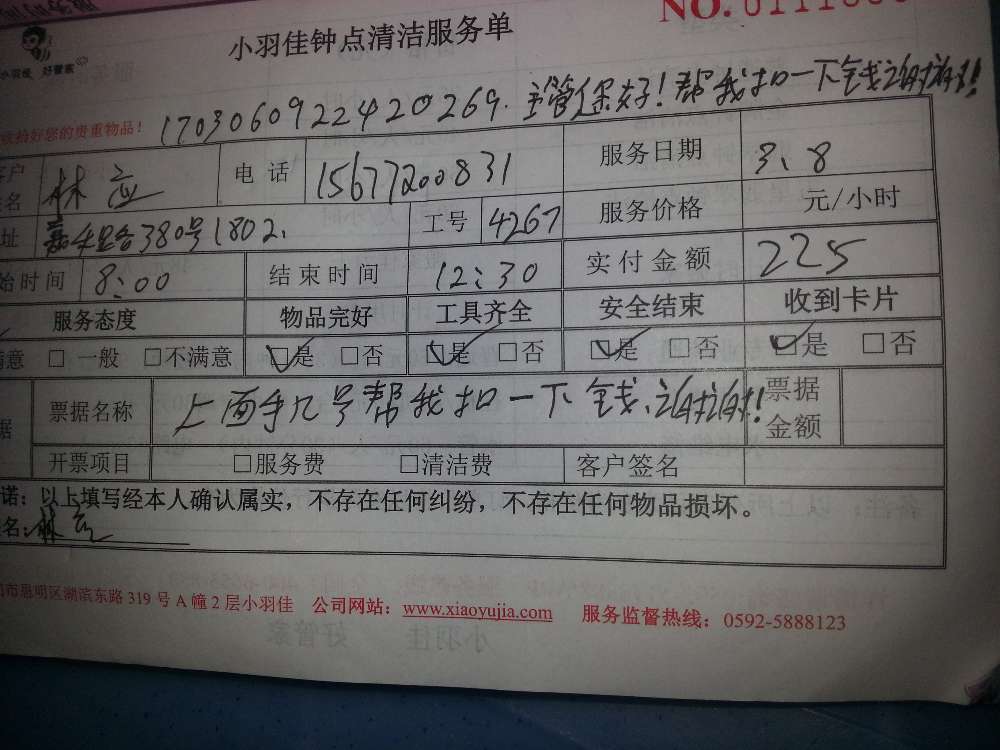 小羽佳钟点清洁服务单
NO.
小羽佳 好管家
收拾好您的贵重物品!
17030609224420269. 主管你好!帮我扣一下钱谢谢!
户名 林 电话 15677200831 服务日期 3、8
址 380号1802. 工号 4267 服务价格 元/小时
始时间 8:00 结束时间 12:30 实付金额 225
服务态度 物品完好 工具齐全 安全结束 收到卡片
满意 □ 一般 □不满意 □是 □否 □是 □否 □是 □否 □是 □否
据 票据名称 上面手几号帮我扣一下钱、谢谢! 票据金额
开票项目 □服务费 □清洁费 客户签名
诺:以上填写经本人确认属实,不存在任何纠纷,不存在任何物品损坏。
名:林
市思明区湖滨东路 319 号 A 幢 2 层小羽佳 公司网站:www.xiaoyujia.com 服务监督热线:0592-5888123